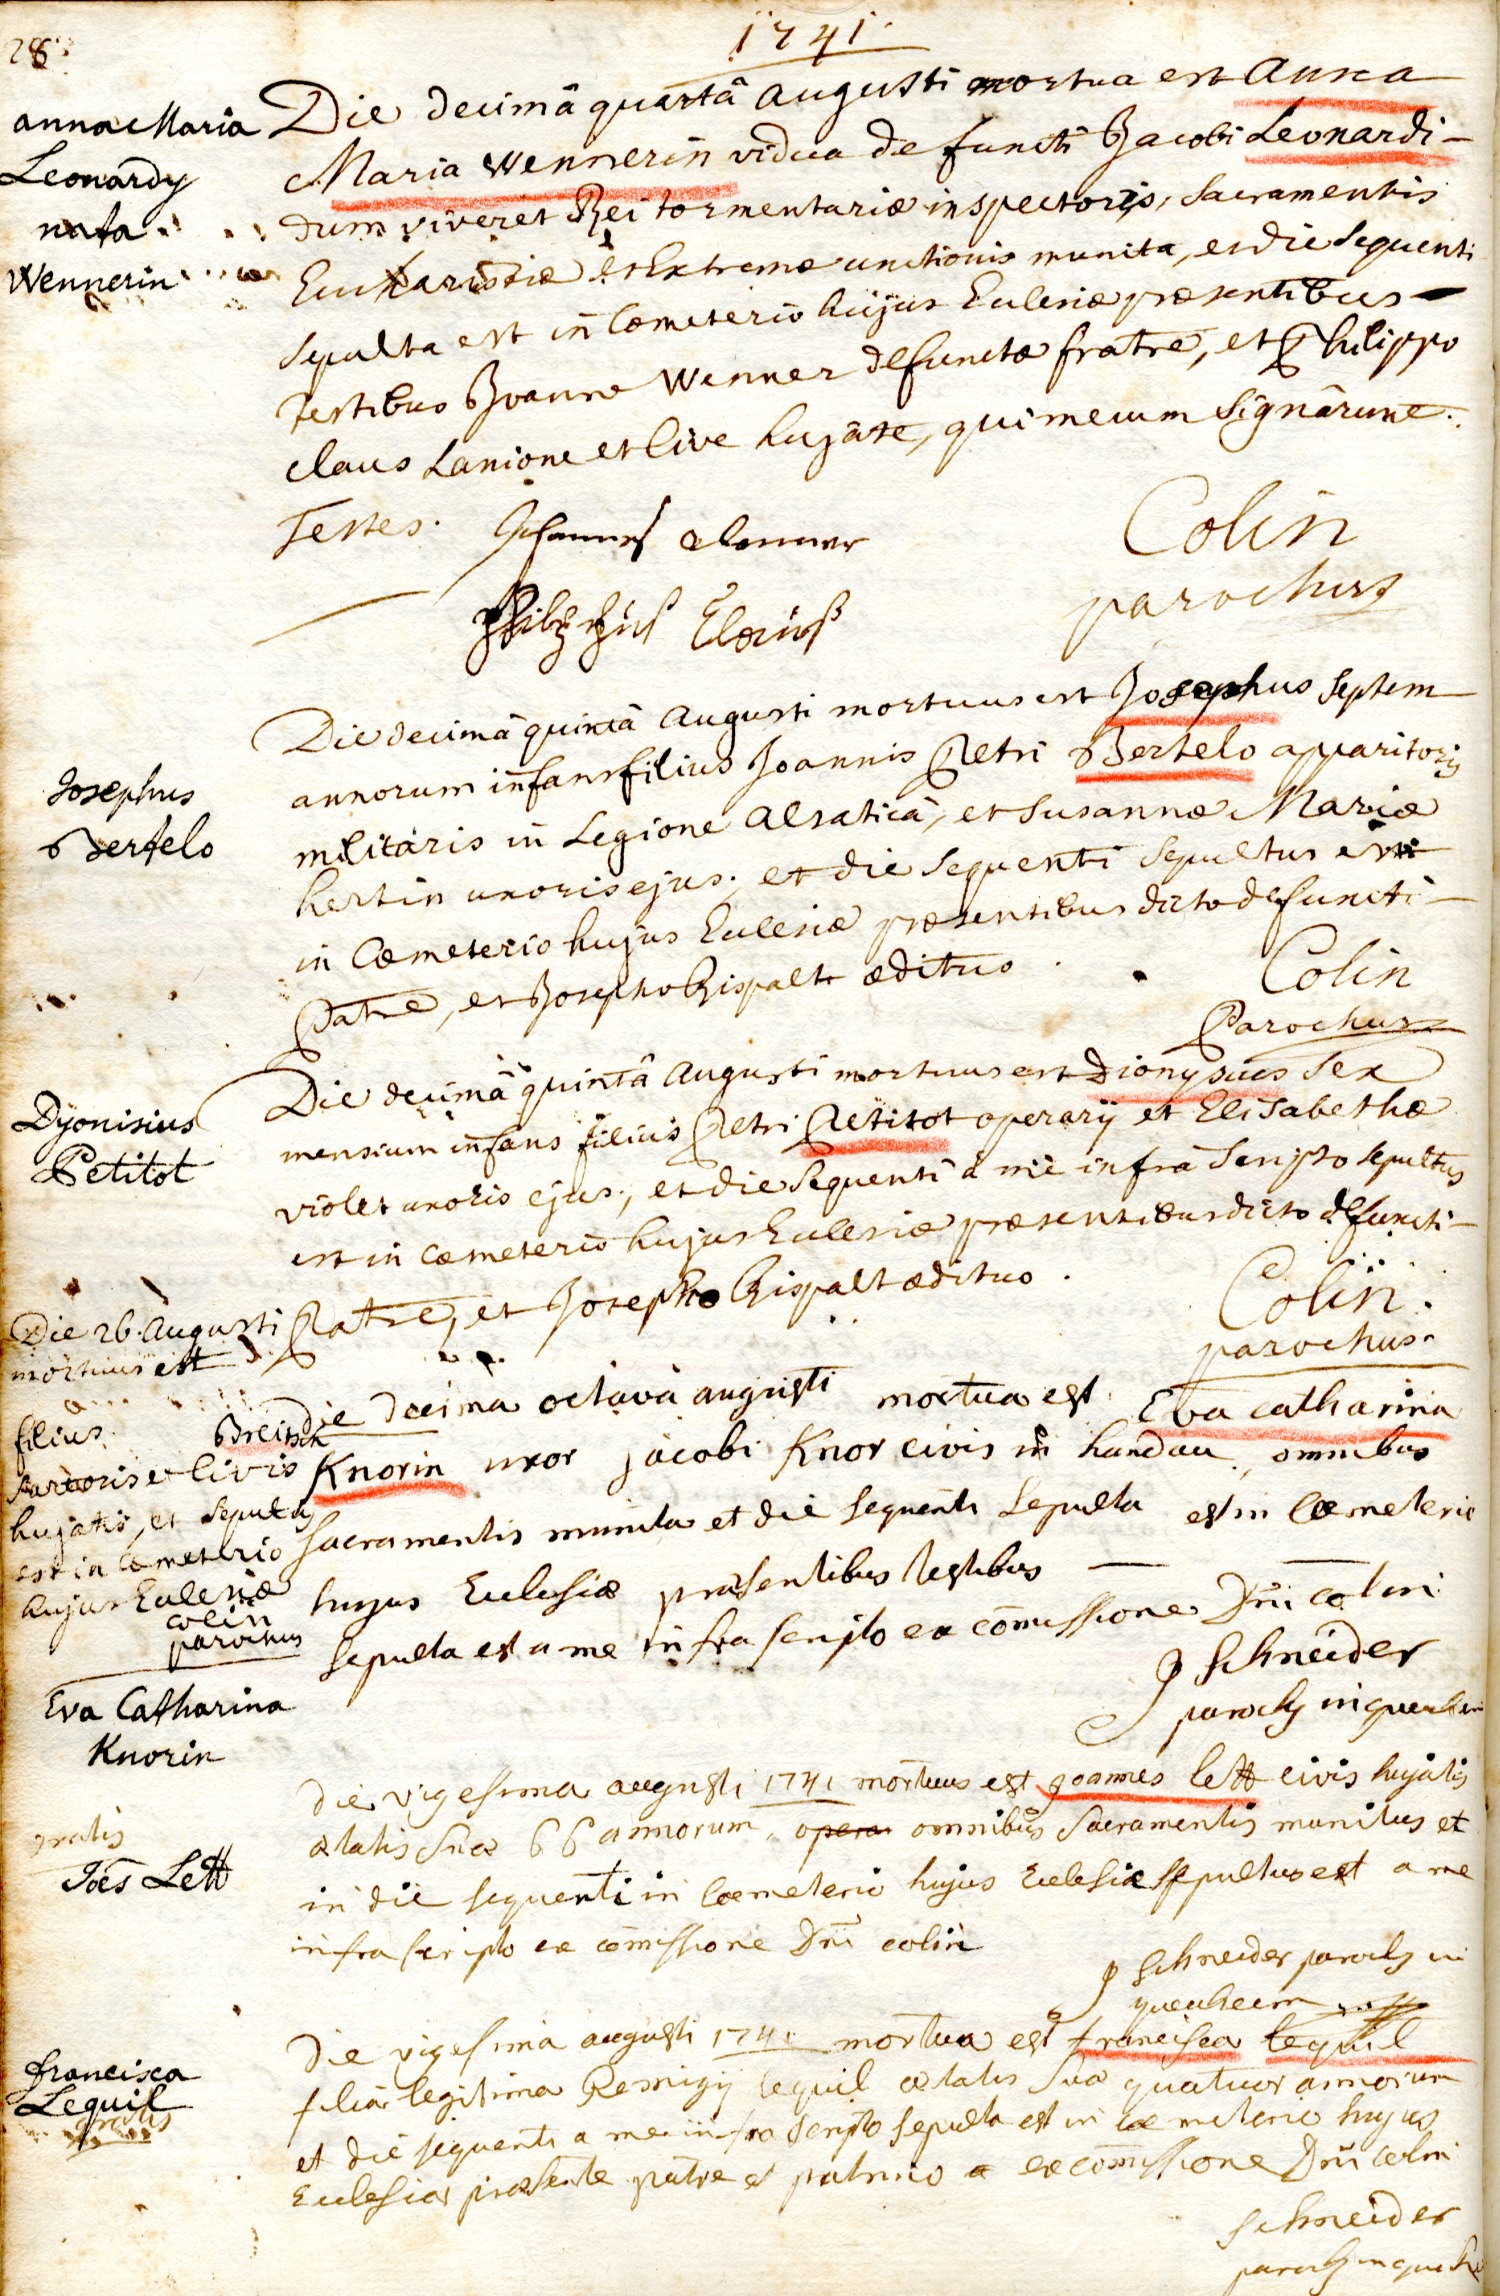 1741.
28
anna Maria
Leonardy
nata
Wennerin
Die decimâ quartâ Augusti mortua est Anna
Maria Wennerin vidua defuncti Jacobi Leonardi
dum viveret Rei tormentariæ inspectoris, sacramentis
Eucharistiæ et Extremæ unctionis munita, et die sequenti
sepulta est in Cœmeterio hujus Eclesiæ præsentibus
testibus Joanne Wenner defunctæ fratre, et Philippo
claus Lanione et Cive hujate, qui mecum signârunt.
Testes. Johannes Wenner
Colin
parochus
Philippus Claus
Josephus
Bertelo
Die decimâ quintâ Augusti mortuus est Josephus septem
annorum infans filius Joannis Petri Bertelo apparitoris
militaris in Legione Alsaticâ, et Susannæ Mariæ
hertin uxoris ejus, et die sequenti sepultus est
in Cœmeterio hujus Eclesiæ præsentibus dicto defuncti
Patre, et Josepho Rispalt ædituo.
Colin
Parochus
Dyonisius
Petitot
Die decimâ quintâ Augusti mortuus est Dionysius sex
mensium infans filius Petri Petitot operarij et Elisabethæ
violet uxoris ejus, et die sequenti à me infrà scripto sepultus
est in cœmeterio hujus Eclesiæ præsentibus dicto defuncti
Patre, et Josepho Rispalt ædituo.
Colin.
parochus.
Die 26. Augusti
mortuus est
filius Breitsch
sartoris et Civis
hujatis, et sepultus
est in Cœmeterio
hujus Eclesiæ
colin
parochus
Eva Catharina
Knorin
Die decima octava augusti mortua est Eva catharina
Knorin uxor jacobi Knor civis in handau, omnibus
sacramentis munita et die sequenti sepulta est in Cœmeterio
hujus Eclesiæ præsentibus testibus
sepulta est a me infra scripto ex cōmissione Dni colin
J Schneider
paroch9 in queichheim
gratis
Joēs Lett
Die vigesima augusti 1741 mortuus est joannes lett civis hujatis
ætatis suæ 66 annorum, omnibus sacramentis munitus et
in die sequenti in Cœmeterio hujus Eclesiæ sepultus est a me
infra scripto ex cōmissione Dni colin
J Schneider paroch9 in
queicheim
francisca
Lequil
gratis
Die vigesima augusti 1741 mortua est francisca lequil
filia legitima Remigij lequil ætatis suæ quatuor annorum
et die sequenti a me infra scripto sepulta est in cœmeterio hujus
Eclesiæ præsente patre et patruo ex cōmissione Dni colin
schneider
paroch9 in queich